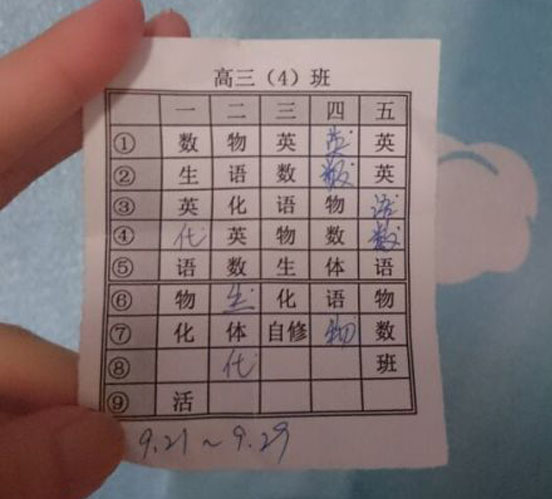 高三（4）班
一 二 三 四 五
① 数 物 英 英 英
② 生 语 数 数 英
③ 英 化 语 物 语
④ 化 英 物 数 数
⑤ 语 数 生 体 语
⑥ 物 生 化 语 物
⑦ 化 体 自修 物 数
⑧ 化 班
⑨ 活
9.21～9.29